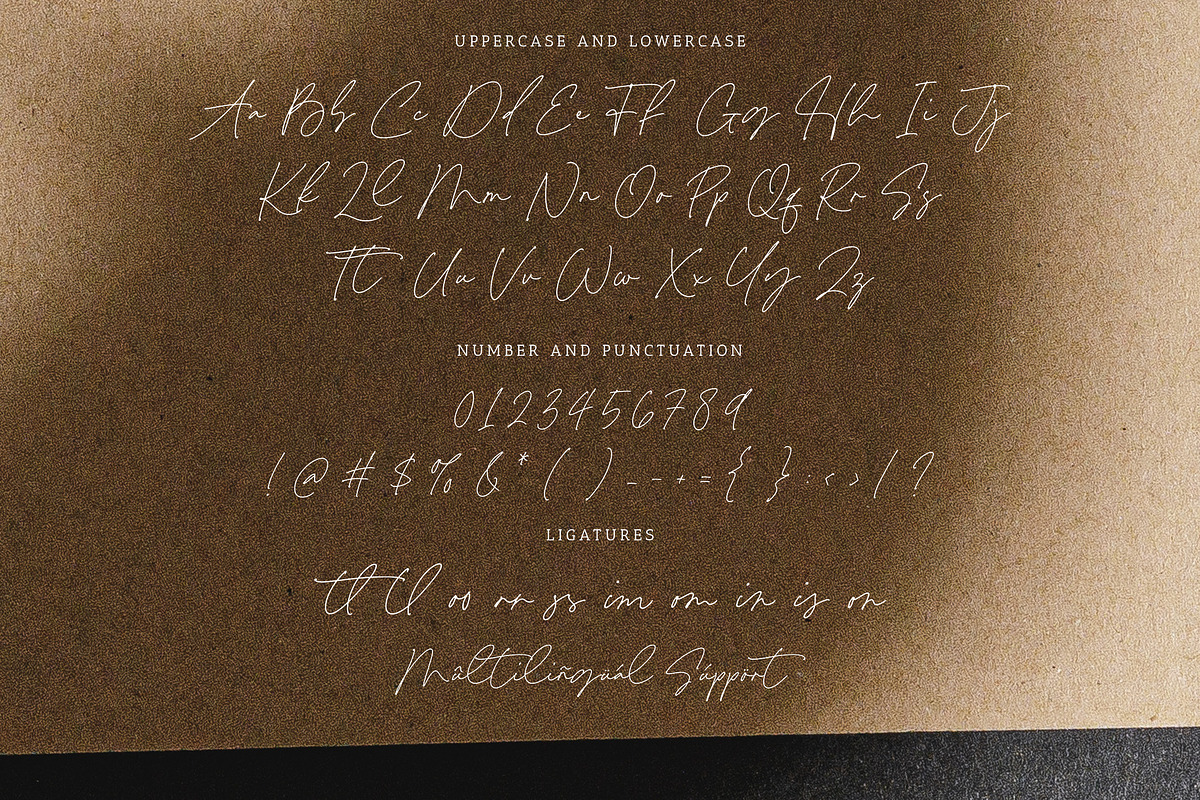 UPPERCASE AND LOWERCASE
Aa Bb Cc Dd Ee Ff Gg Hh Ii Jj
Kk Ll Mm Nn Oo Pp Qq Rr Ss
Tt Uu Vv Ww Xx Yy Zz
NUMBER AND PUNCTUATION
0123456789
! @ # $ % & * ( ) _ - + = { } : < > / ?
LIGATURES
tt ll oo rr ss im om in is on
Mûltiliñgüál Súppört